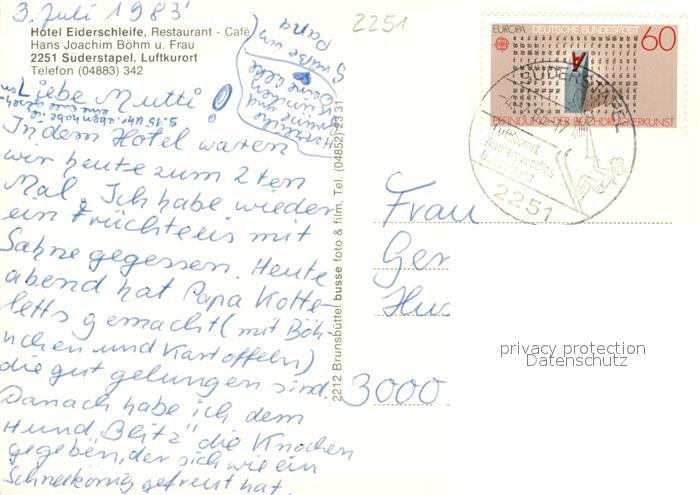 3. Juli 1983
Hotel Eiderschleife, Restaurant - Café
Hans Joachim Böhm u. Frau
2251 Süderstapel, Luftkurort
Telefon (04883) 342
Liebe Mutti!
In dem Hotel waren
wir heute zum 2ten
Mal. Ich habe wieder
ein Früchteeis mit
Sahne gegessen. Heute
abend hat Papa Kotte-
letts gemacht (mit Böh-
nchen und Kartoffeln)
die gut gelungen sind.
Danach habe ich dem
Hund "Blitz" die Knochen
gegeben, der sich wie ein
Schneekönig gefreut hat.
Herzliche
Grüße von
Papa
2212 Brunsbüttel busse foto & film, Tel. (04852) 23 31
2251
EUROPA DEUTSCHE BUNDESPOST 60
ERFINDUNG DER BUCHDRUCKERKUNST
SÜDERSTAPEL
Luftkurort
2251
Frau
Ger
3000
privacy protection
Datenschutz